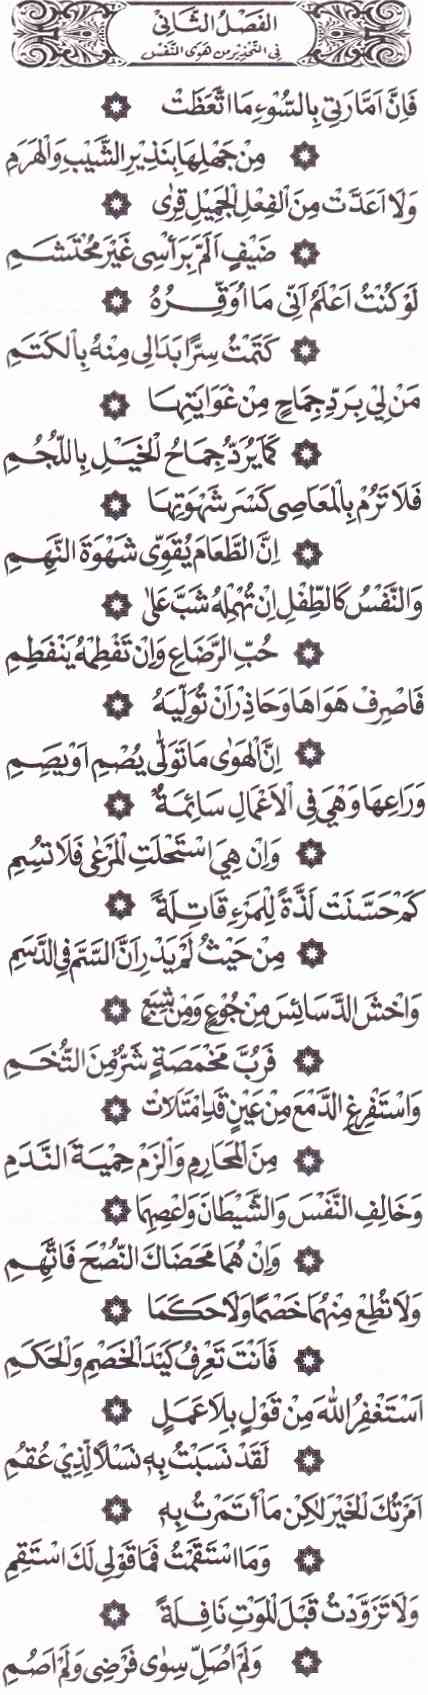 الفَصْلُ الثَّانِي
فِي التَّحْذِيْرِ مِنْ هَوَى النَّفْسِ
فَاِنَّ اَمَّارَتِيْ بِالسُّوْءِ مَا اتَّعَظَتْ
مِنْ جَهْلِهَا بِنَذِيْرِ الشَّيْبِ وَالْهَرَمِ
وَلَا اَعَدَّتْ مِنَ الْفِعْلِ الْجَمِيْلِ قِرٰى
ضَيْفٍ اَلَمَّ بِرَأْسِيْ غَيْرَ مُحْتَشَمِ
لَوْ كُنْتُ اَعْلَمُ اَنِّيْ مَا اُوَقِّرُهُ
كَتَمْتُ سِرًّا بَدَالِيْ مِنْهُ بِالْكَتَمِ
مَنْ لِيْ بِرَدِّ جِمَاحٍ مِنْ غَوَايَتِهَا
كَمَا يُرَدُّ جِمَاحُ الْخَيْلِ بِاللُّجُمِ
فَلَا تَرُمْ بِالْمَعَاصِيْ كَسْرَ شَهْوَتِهَا
اِنَّ الطَّعَامَ يُقَوِّيْ شَهْوَةَ النَّهِمِ
وَالنَّفْسُ كَالطِّفْلِ اِنْ تُهْمِلْهُ شَبَّ عَلٰى
حُبِّ الرَّضَاعِ وَاِنْ تَفْطِمْهُ يَنْفَطِمِ
فَاصْرِفْ هَوَاهَا وَحَاذِرْ اَنْ تُوَلِّيَهُ
اِنَّ الْهَوٰى مَا تَوَلّٰى يُصْمِ اَوْ يَصِمِ
وَرَاعِهَا وَهْيَ فِي الْاَعْمَالِ سَائِمَةٌ
وَاِنْ هِيَ اسْتَحْلَتِ الْمَرْعٰى فَلَا تُسِمِ
كَمْ حَسَّنَتْ لَذَّةً لِلْمَرْءِ قَاتِلَةً
مِنْ حَيْثُ لَمْ يَدْرِ اَنَّ السَّمَّ فِي الدَّسَمِ
وَاخْشَ الدَّسَائِسَ مِنْ جُوْعٍ وَمِنْ شِبَعٍ
فَرُبَّ مَخْمَصَةٍ شَرٌّ مِنَ التُّخَمِ
وَاسْتَفْرِغِ الدَّمْعَ مِنْ عَيْنٍ قَدِ امْتَلَاَتْ
مِنَ الْمَحَارِمِ وَالْزَمْ حِمْيَةَ النَّدَمِ
وَخَالِفِ النَّفْسَ وَالشَّيْطَانَ وَاعْصِهِمَا
وَاِنْ هُمَا مَحَضَاكَ النُّصْحَ فَاتَّهِمِ
وَلَا تُطِعْ مِنْهُمَا خَصْمًا وَلَا حَكَمًا
فَاَنْتَ تَعْرِفُ كَيْدَ الْخَصْمِ وَالْحَكَمِ
اَسْتَغْفِرُ اللّٰهَ مِنْ قَوْلٍ بِلَا عَمَلٍ
لَقَدْ نَسَبْتُ بِهٖ نَسْلًا لِّذِيْ عُقُمِ
اَمَرْتُكَ الْخَيْرَ لٰكِنْ مَا ائْتَمَرْتُ بِهٖ
وَمَا اسْتَقَمْتُ فَمَا قَوْلِيْ لَكَ اسْتَقِمِ
وَلَا تَزَوَّدْتُ قَبْلَ الْمَوْتِ نَافِلَةً
وَلَمْ اُصَلِّ سِوٰى فَرْضِيْ وَلَمْ اَصُمِ